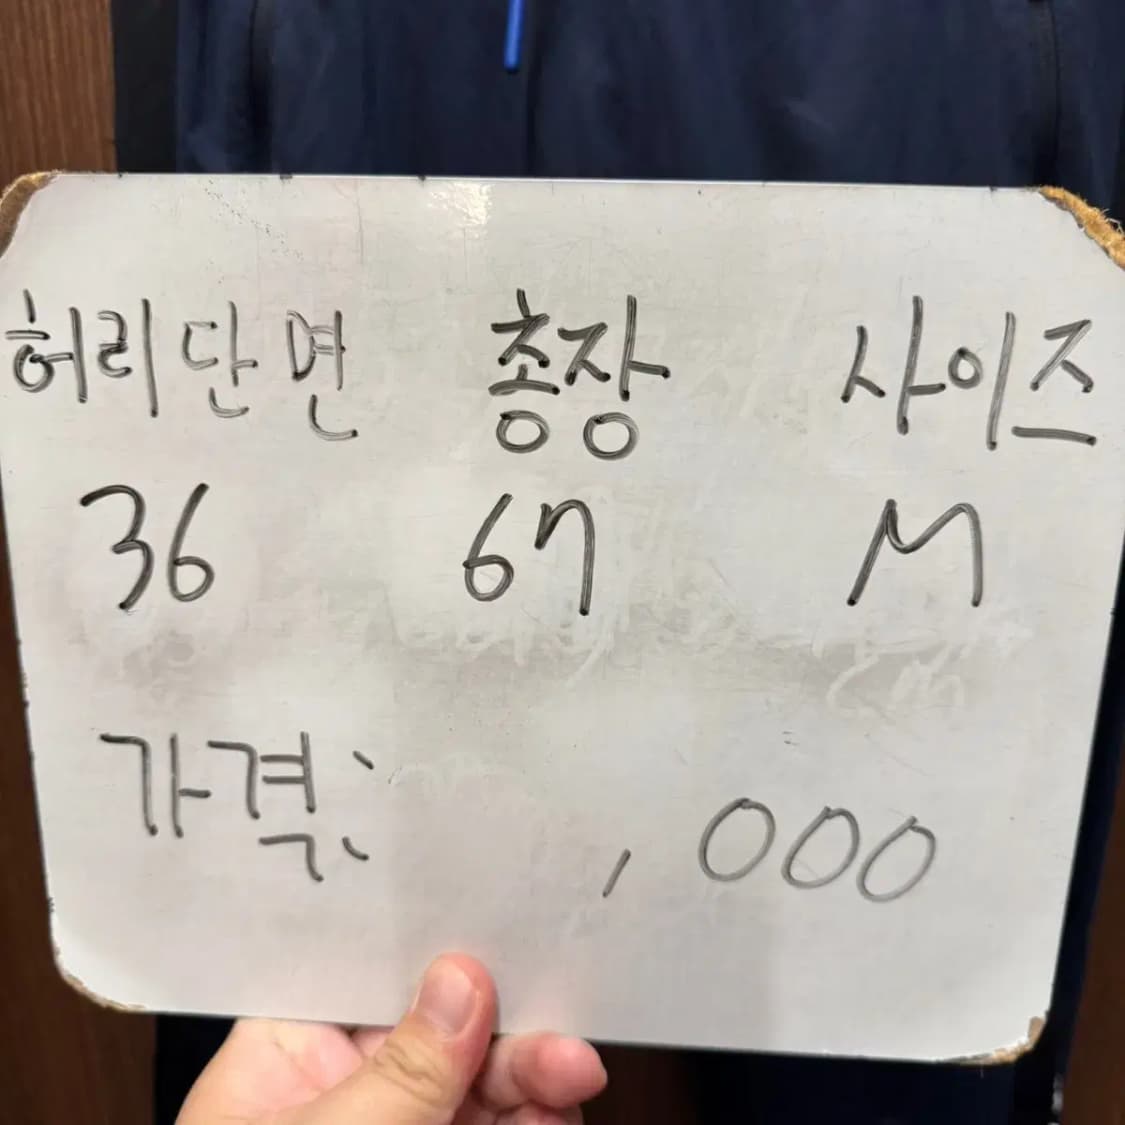 허리단면 총장 사이즈
36 67 M
가격: ,000